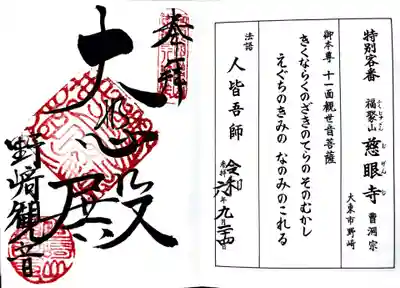 特別客番
福聚山 慈眼寺 曹洞宗
ふくじゅさん じげんじ
大東市野崎
御本尊 十一面観世音菩薩
きくならくのざきのてらの そのむかし
えぐちのきみの なのみのこれる
法語 人皆吾師
令和六年九月二十四日
奉拝
大悲殿
野崎観音